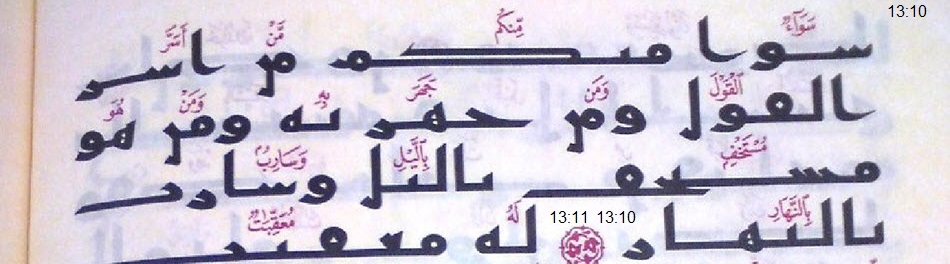 13:10
سَوَآءٌ مِّنكُم مَّنْ أَسَرَّ
سوا منكم من اسر
ٱلْقَوْلَ وَمَن جَهَرَ بِهِۦ وَمَنْ هُوَ
القول ومن جهر به ومن هو
مُسْتَخْفٍۭ بِٱلَّيْلِ وَسَارِبٌۢ
مستخف باليل وسارب
بِٱلنَّهَارِ لَهُۥ مُعَقِّبَٰتٌ
13:11 13:10
بالنهار له معقبت